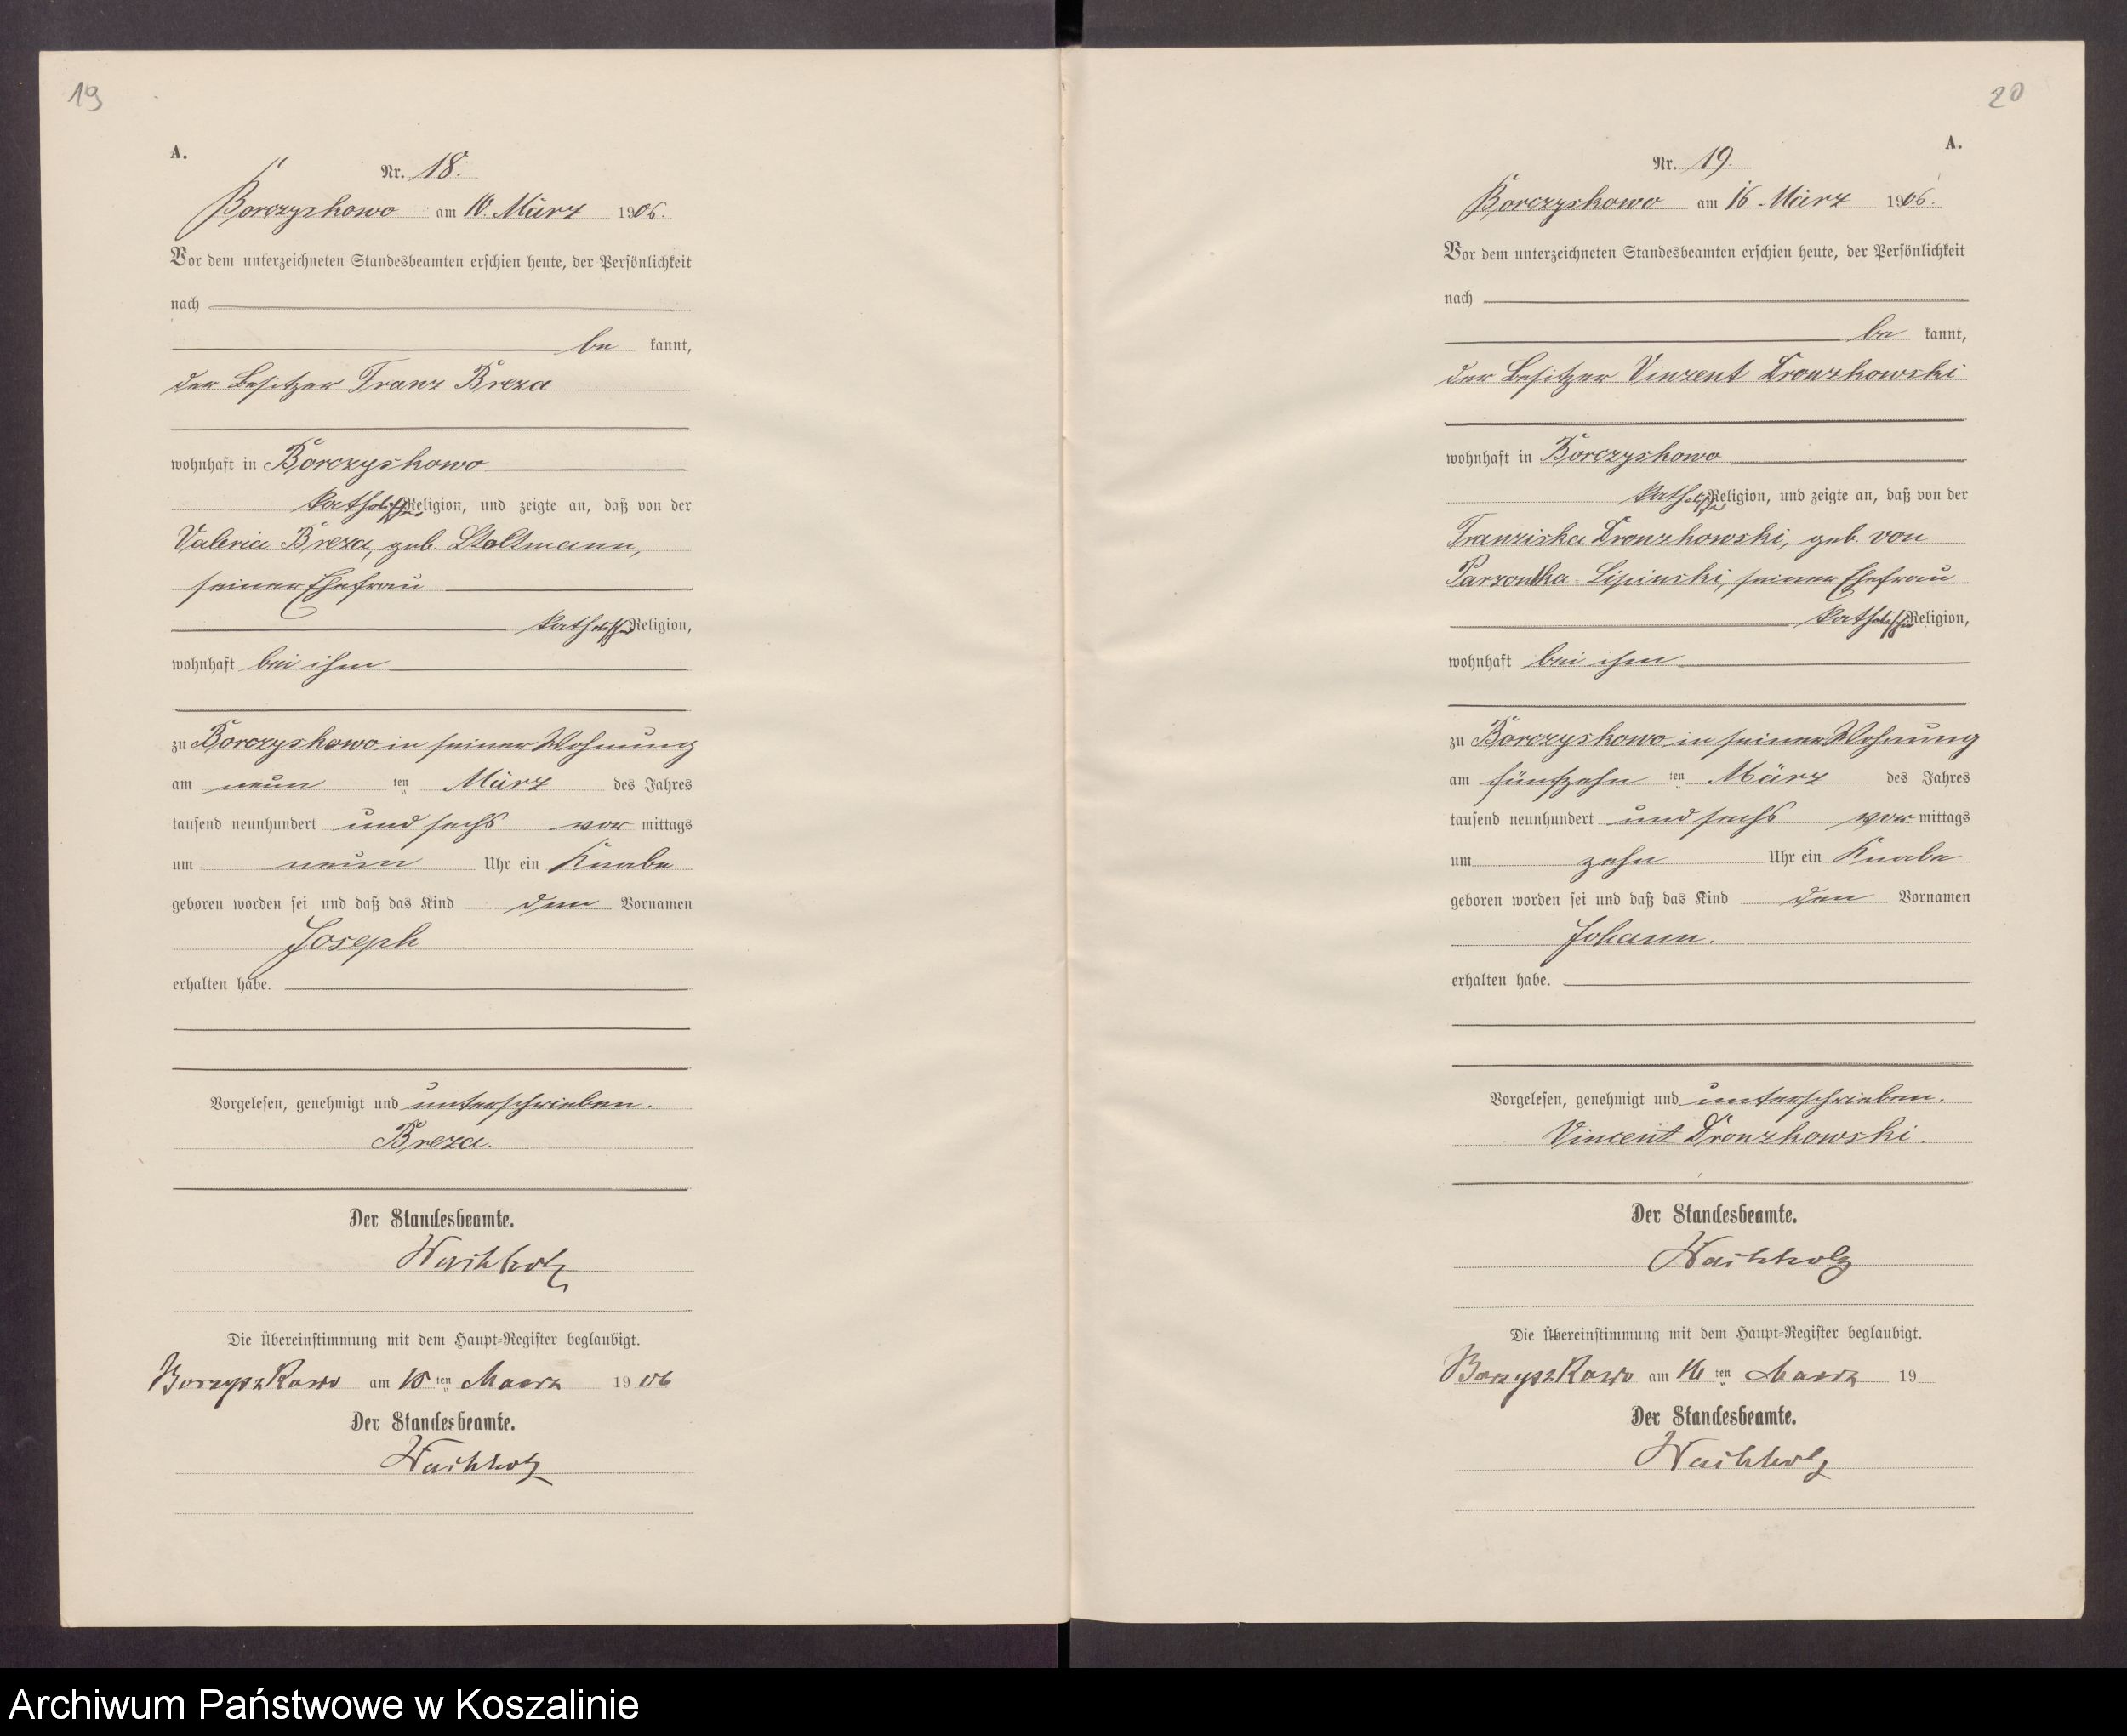 19
A.
Nr. 18.
Borczyskowo am 10. März 1906.
Vor dem unterzeichneten Standesbeamten erschien heute, der Persönlichkeit
nach
be kannt,
der Besitzer Franz Breza
wohnhaft in Borczyskowo
katholischer Religion, und zeigte an, daß von der
Valeria Breza, geb. Stoltmann,
seiner Ehefrau
katholischer Religion,
wohnhaft bei ihm
zu Borczyskowo in seiner Wohnung
am neun ten März des Jahres
tausend neunhundert und sechs vor mittags
um neun Uhr ein Knabe
geboren worden sei und daß das Kind den Vornamen
Joseph
erhalten habe.
Vorgelesen, genehmigt und unterschrieben.
Breza.
Der Standesbeamte.
Wachholz
Die Übereinstimmung mit dem Haupt-Register beglaubigt.
Borzyszkowo am 10 ten Maerz 1906
Der Standesbeamte.
Wachholz
20
A.
Nr. 19.
Borczyskowo am 16 März 1906.
Vor dem unterzeichneten Standesbeamten erschien heute, der Persönlichkeit
nach
be kannt,
der Besitzer Vinzent Dronzkowski
wohnhaft in Borczyskowo
katholischer Religion, und zeigte an, daß von der
Franziska Dronzkowski, geb. von
Parzontka-Lipinski, seiner Ehefrau
katholischer Religion,
wohnhaft bei ihm
zu Borczyskowo in seiner Wohnung
am fünfzehn ten März des Jahres
tausend neunhundert und sechs vor mittags
um zehn Uhr ein Knabe
geboren worden sei und daß das Kind den Vornamen
Johann.
erhalten habe.
Vorgelesen, genehmigt und unterschrieben.
Vincent Dronzkowski.
Der Standesbeamte.
Wachholz
Die Übereinstimmung mit dem Haupt-Register beglaubigt.
Borzyszkowo am 16 ten Maerz 19
Der Standesbeamte.
Wachholz
Archiwum Państwowe w Koszalinie